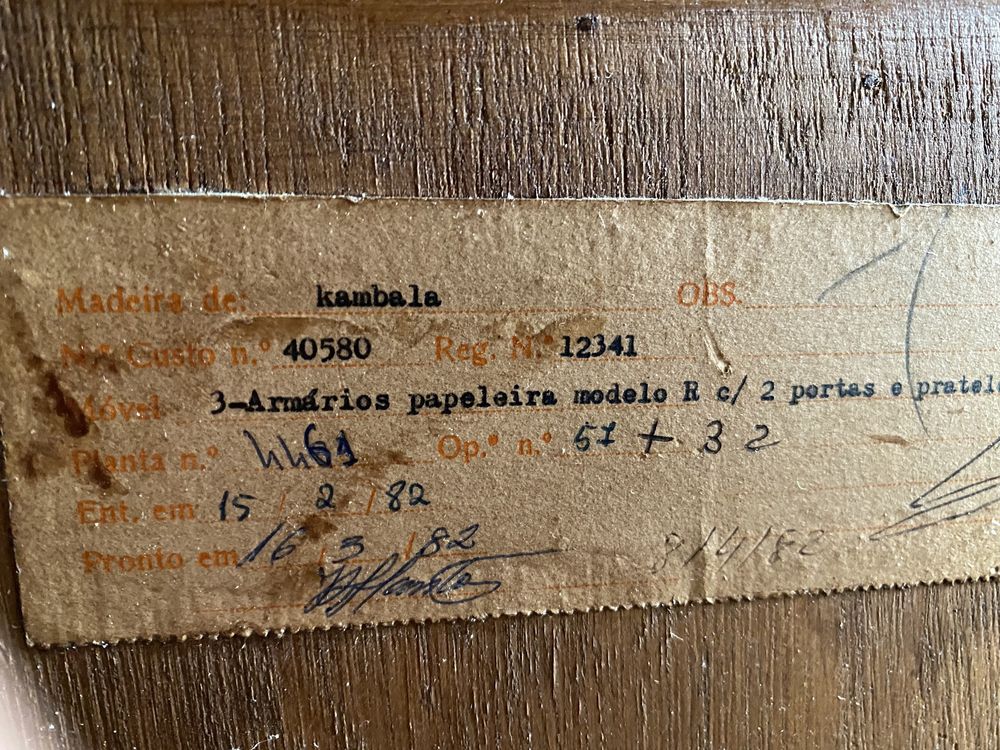 Madeira de: kambala OBS.
N.º Custo n.º 40580 Reg. N.º 12341
Móvel 3-Armários papeleira modelo R c/ 2 portas e pratel
Planta n.º 4461 Op.º n.º 51 + 32
Ent. em 15 / 2 / 82
Pronto em 16 / 3 / 82 3/4/82